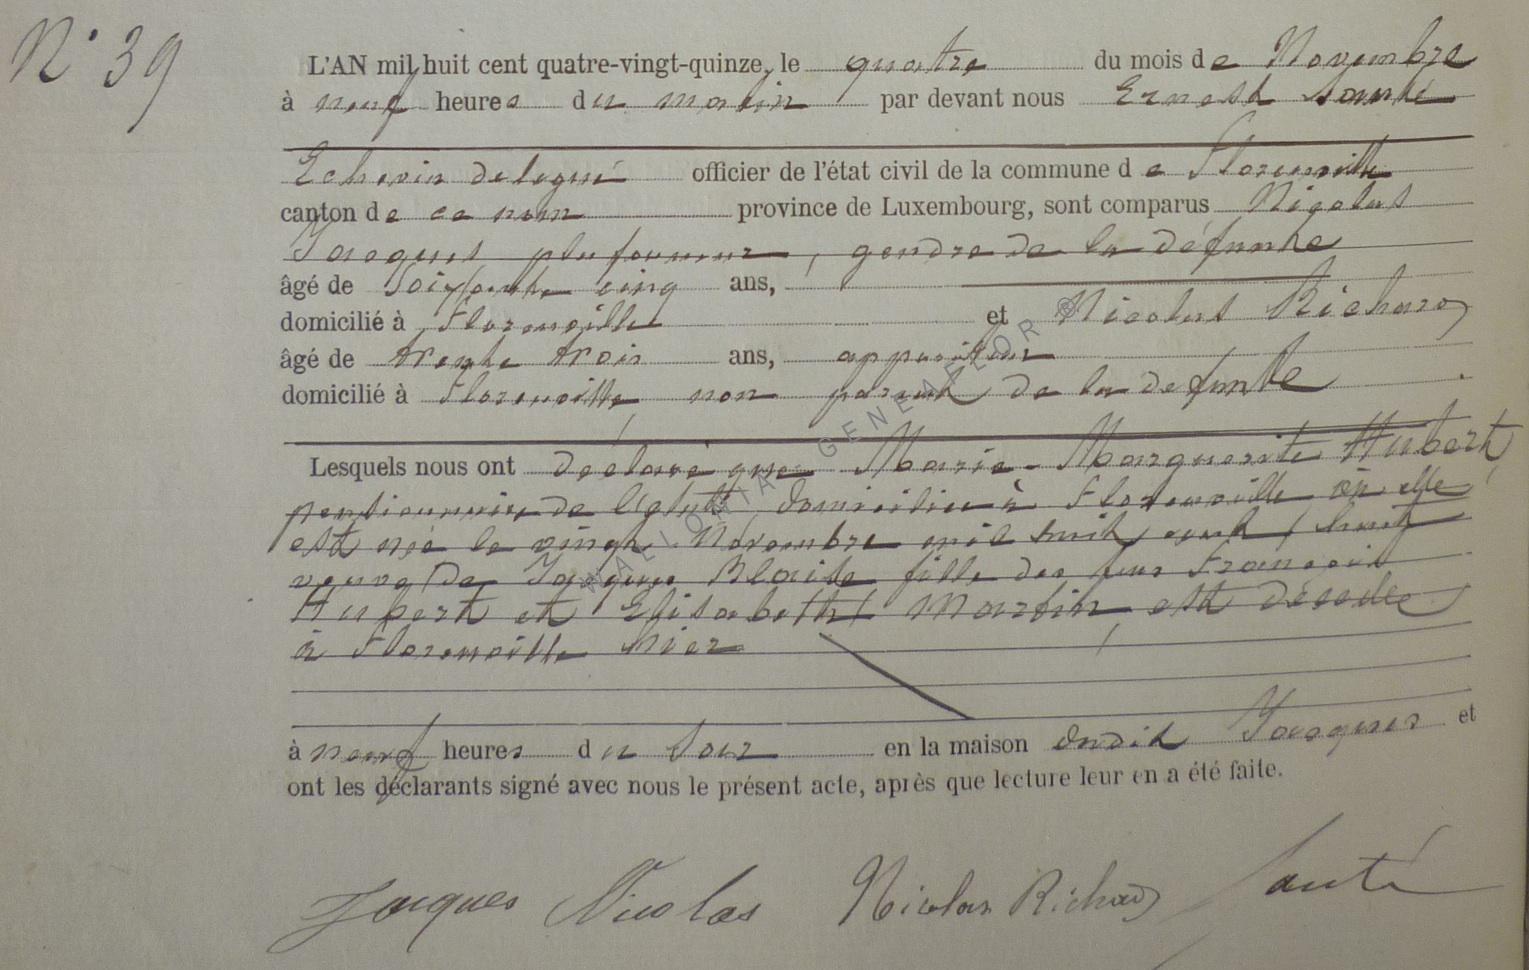 N° 39
L'AN mil huit cent quatre-vingt-quinze, le quatre du mois de Novembre
à neuf heures du matin par devant nous Ernest Santé
Echevin delegué officier de l'état civil de la commune de Florenville
canton de ce nom province de Luxembourg, sont comparus Nicolas
Jacques plafonneur, gendre de la défunte
âgé de Soixante cinq ans,
domicilié à Florenville et Nicolas Richard
âgé de trente trois ans, appariteur
domicilié à Florenville non parent de la defunte
Lesquels nous ont déclaré que Marie-Marguerite Hubert
pensionnaire de l'état domiciliée à Florenville où elle
est née le vingt Novembre mil huit cent huit
veuve de Jacques Blaise fille des feus François
Hubert et Elisabeth Martin est décedée
à Florenville hier
à neuf heures du soir en la maison dudit Jacques et
ont les déclarants signé avec nous le présent acte, après que lecture leur en a été faite.
Jacques Nicolas Nicolas Richard Santé
WALLONIA GENEAFLOR ©